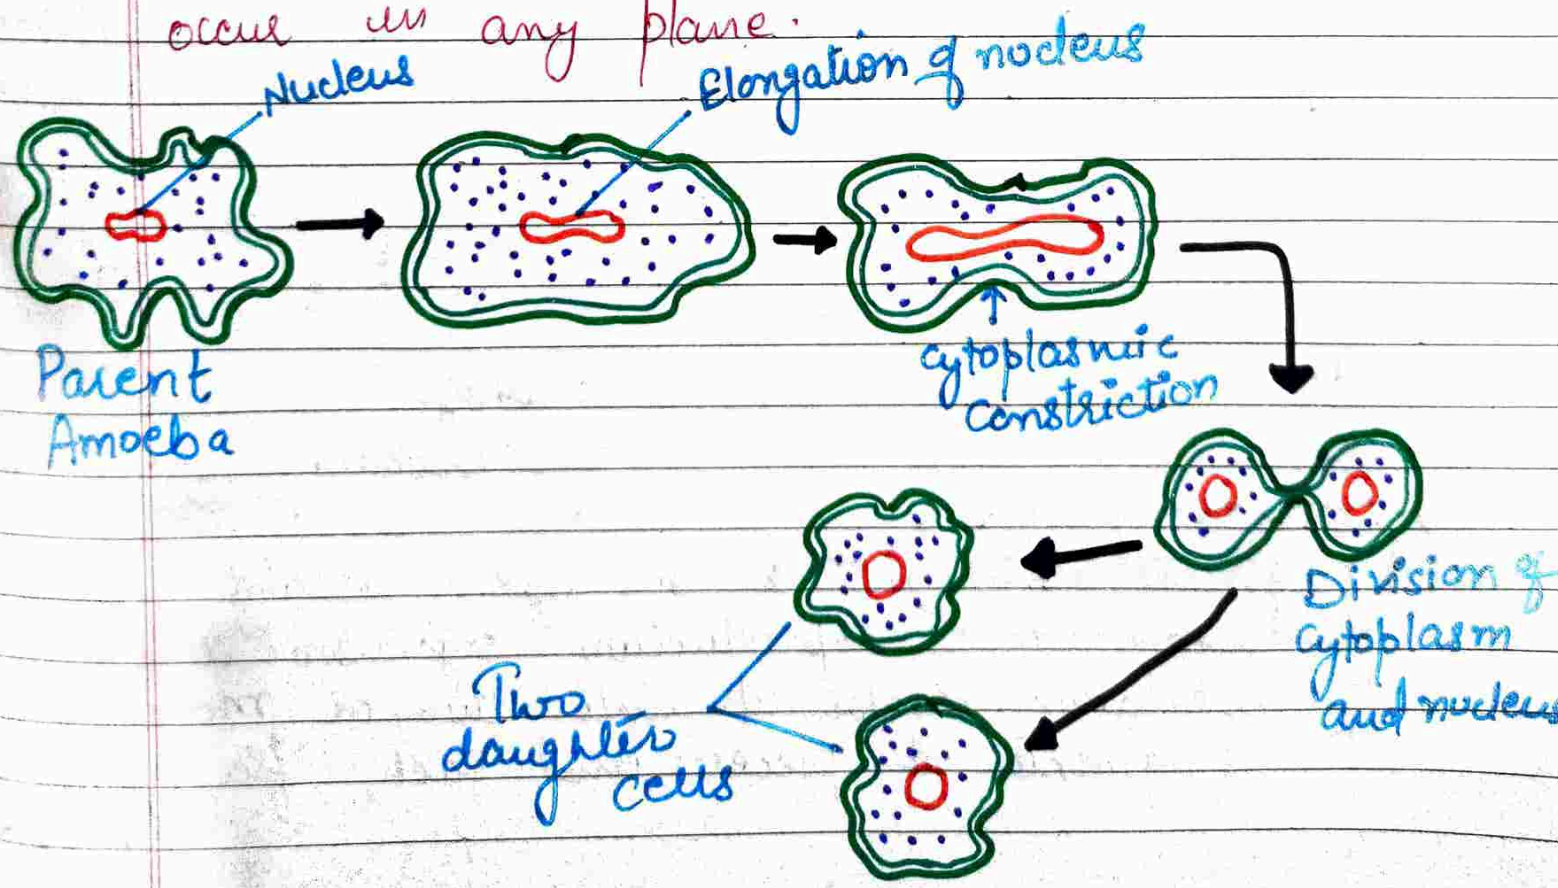 occur in any plane.
Nucleus
Elongation of nucleus
Parent
Amoeba
Cytoplasmic
Constriction
Division of
Cytoplasm
and nucleus
Two
daughter
cells